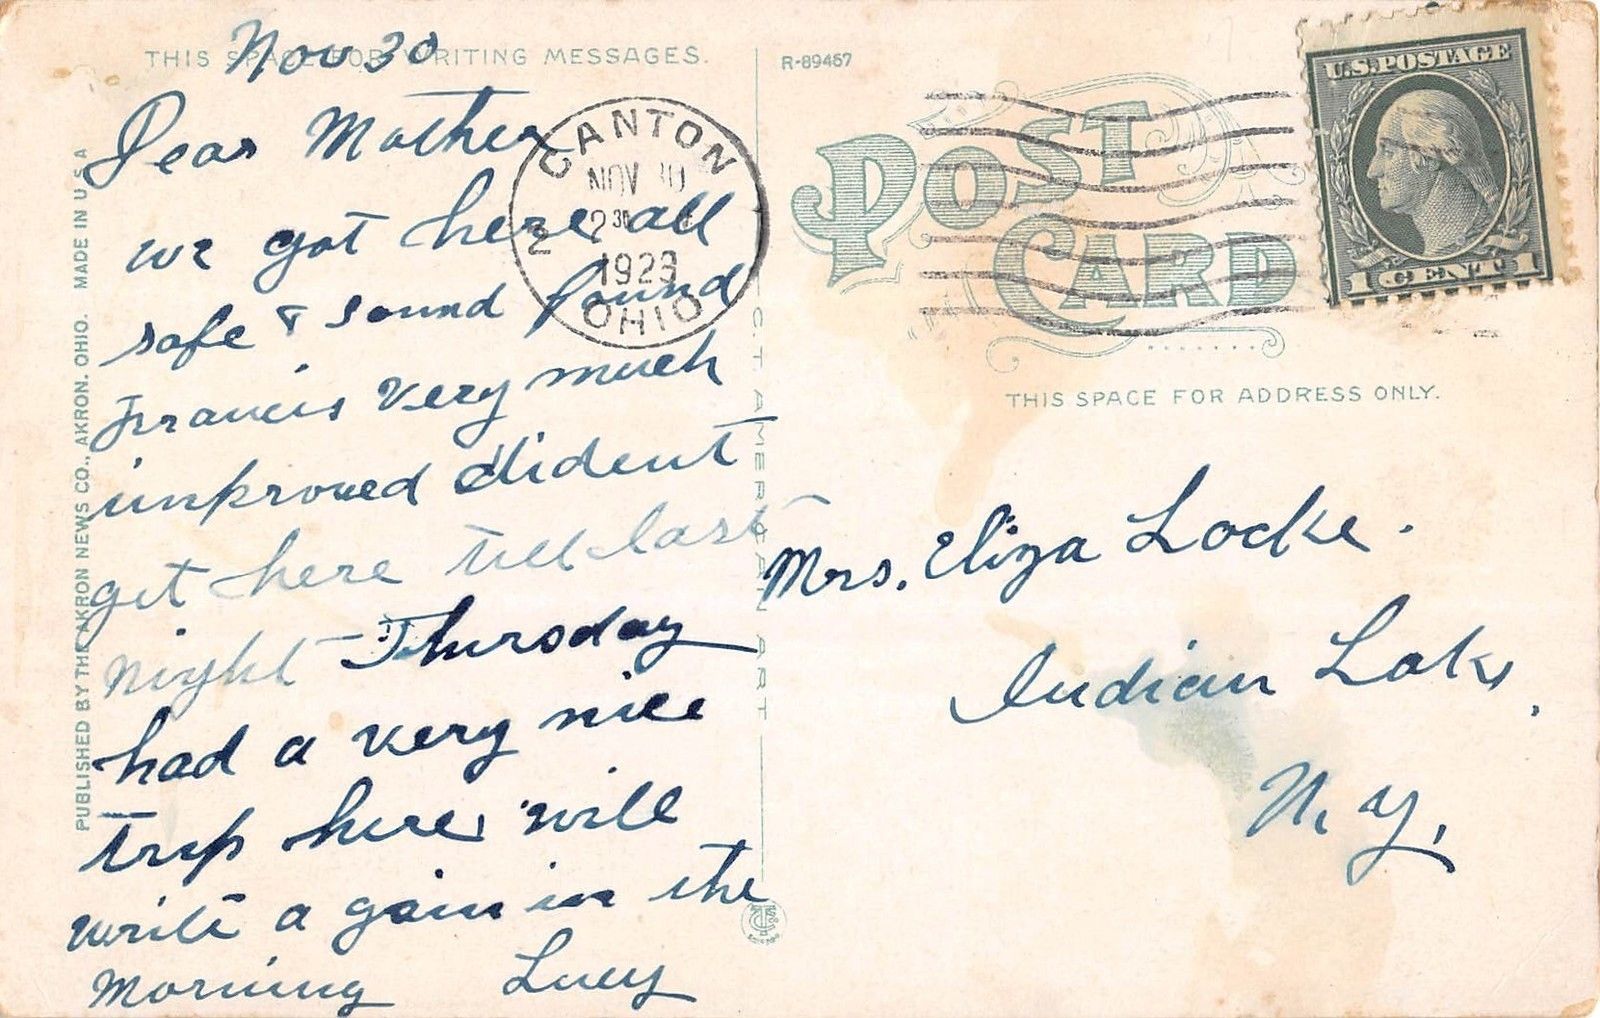 Nov 30
THIS SPACE FOR WRITING MESSAGES.
Dear Mother
we got here all
safe & sound found
Francis very much
improved dident
get here till last
night Thursday
had a very nice
trip here will
write a gain in the
Morning Lucy
PUBLISHED BY THE AKRON NEWS CO., AKRON, OHIO. MADE IN U S A
C. T. AMERICAN ART
CANTON
NOV 30
2 30
1923
OHIO
R-89467
POST
CARD
U.S. POSTAGE
1 CENT 1
THIS SPACE FOR ADDRESS ONLY.
Mrs. Eliza Locke.
Indian Lake,
N. Y.